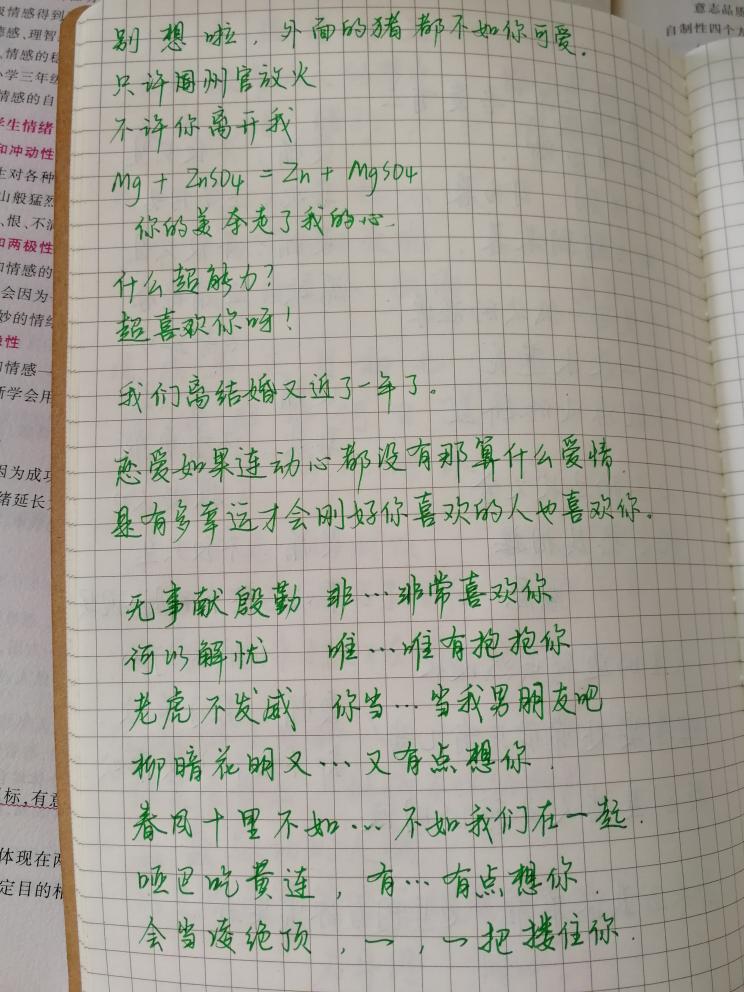 别想啦，外面的猪都不如你可爱．
只许周州官放火
不许你离开我
Mg + ZnSO4 = Zn + MgSO4
你的美夺走了我的心．
什么超能力？
超喜欢你呀！
我们离结婚又近了一年了。
恋爱如果连动心都没有那算什么爱情．
是有多幸运才会刚好你喜欢的人也喜欢你。
无事献殷勤 非…非常喜欢你
何以解忧 唯…唯有抱抱你
老虎不发威 你当…当我男朋友吧
柳暗花明又…又有点想你．
春风十里不如…不如我们在一起．
哑巴吃黄连，有…有点想你．
会当凌绝顶，一，一把搂住你．
情感得到
感、理智
、情感的
学三年级
情感的自
学生情绪
和冲动性
生对各种
山般猛烈
、恨、不
和两极性
和情感的
会因为
妙的情
性
情感一
学会用
因为成功
绪延长
标，有意
体现在两
定目的
意志品质
自制性四个